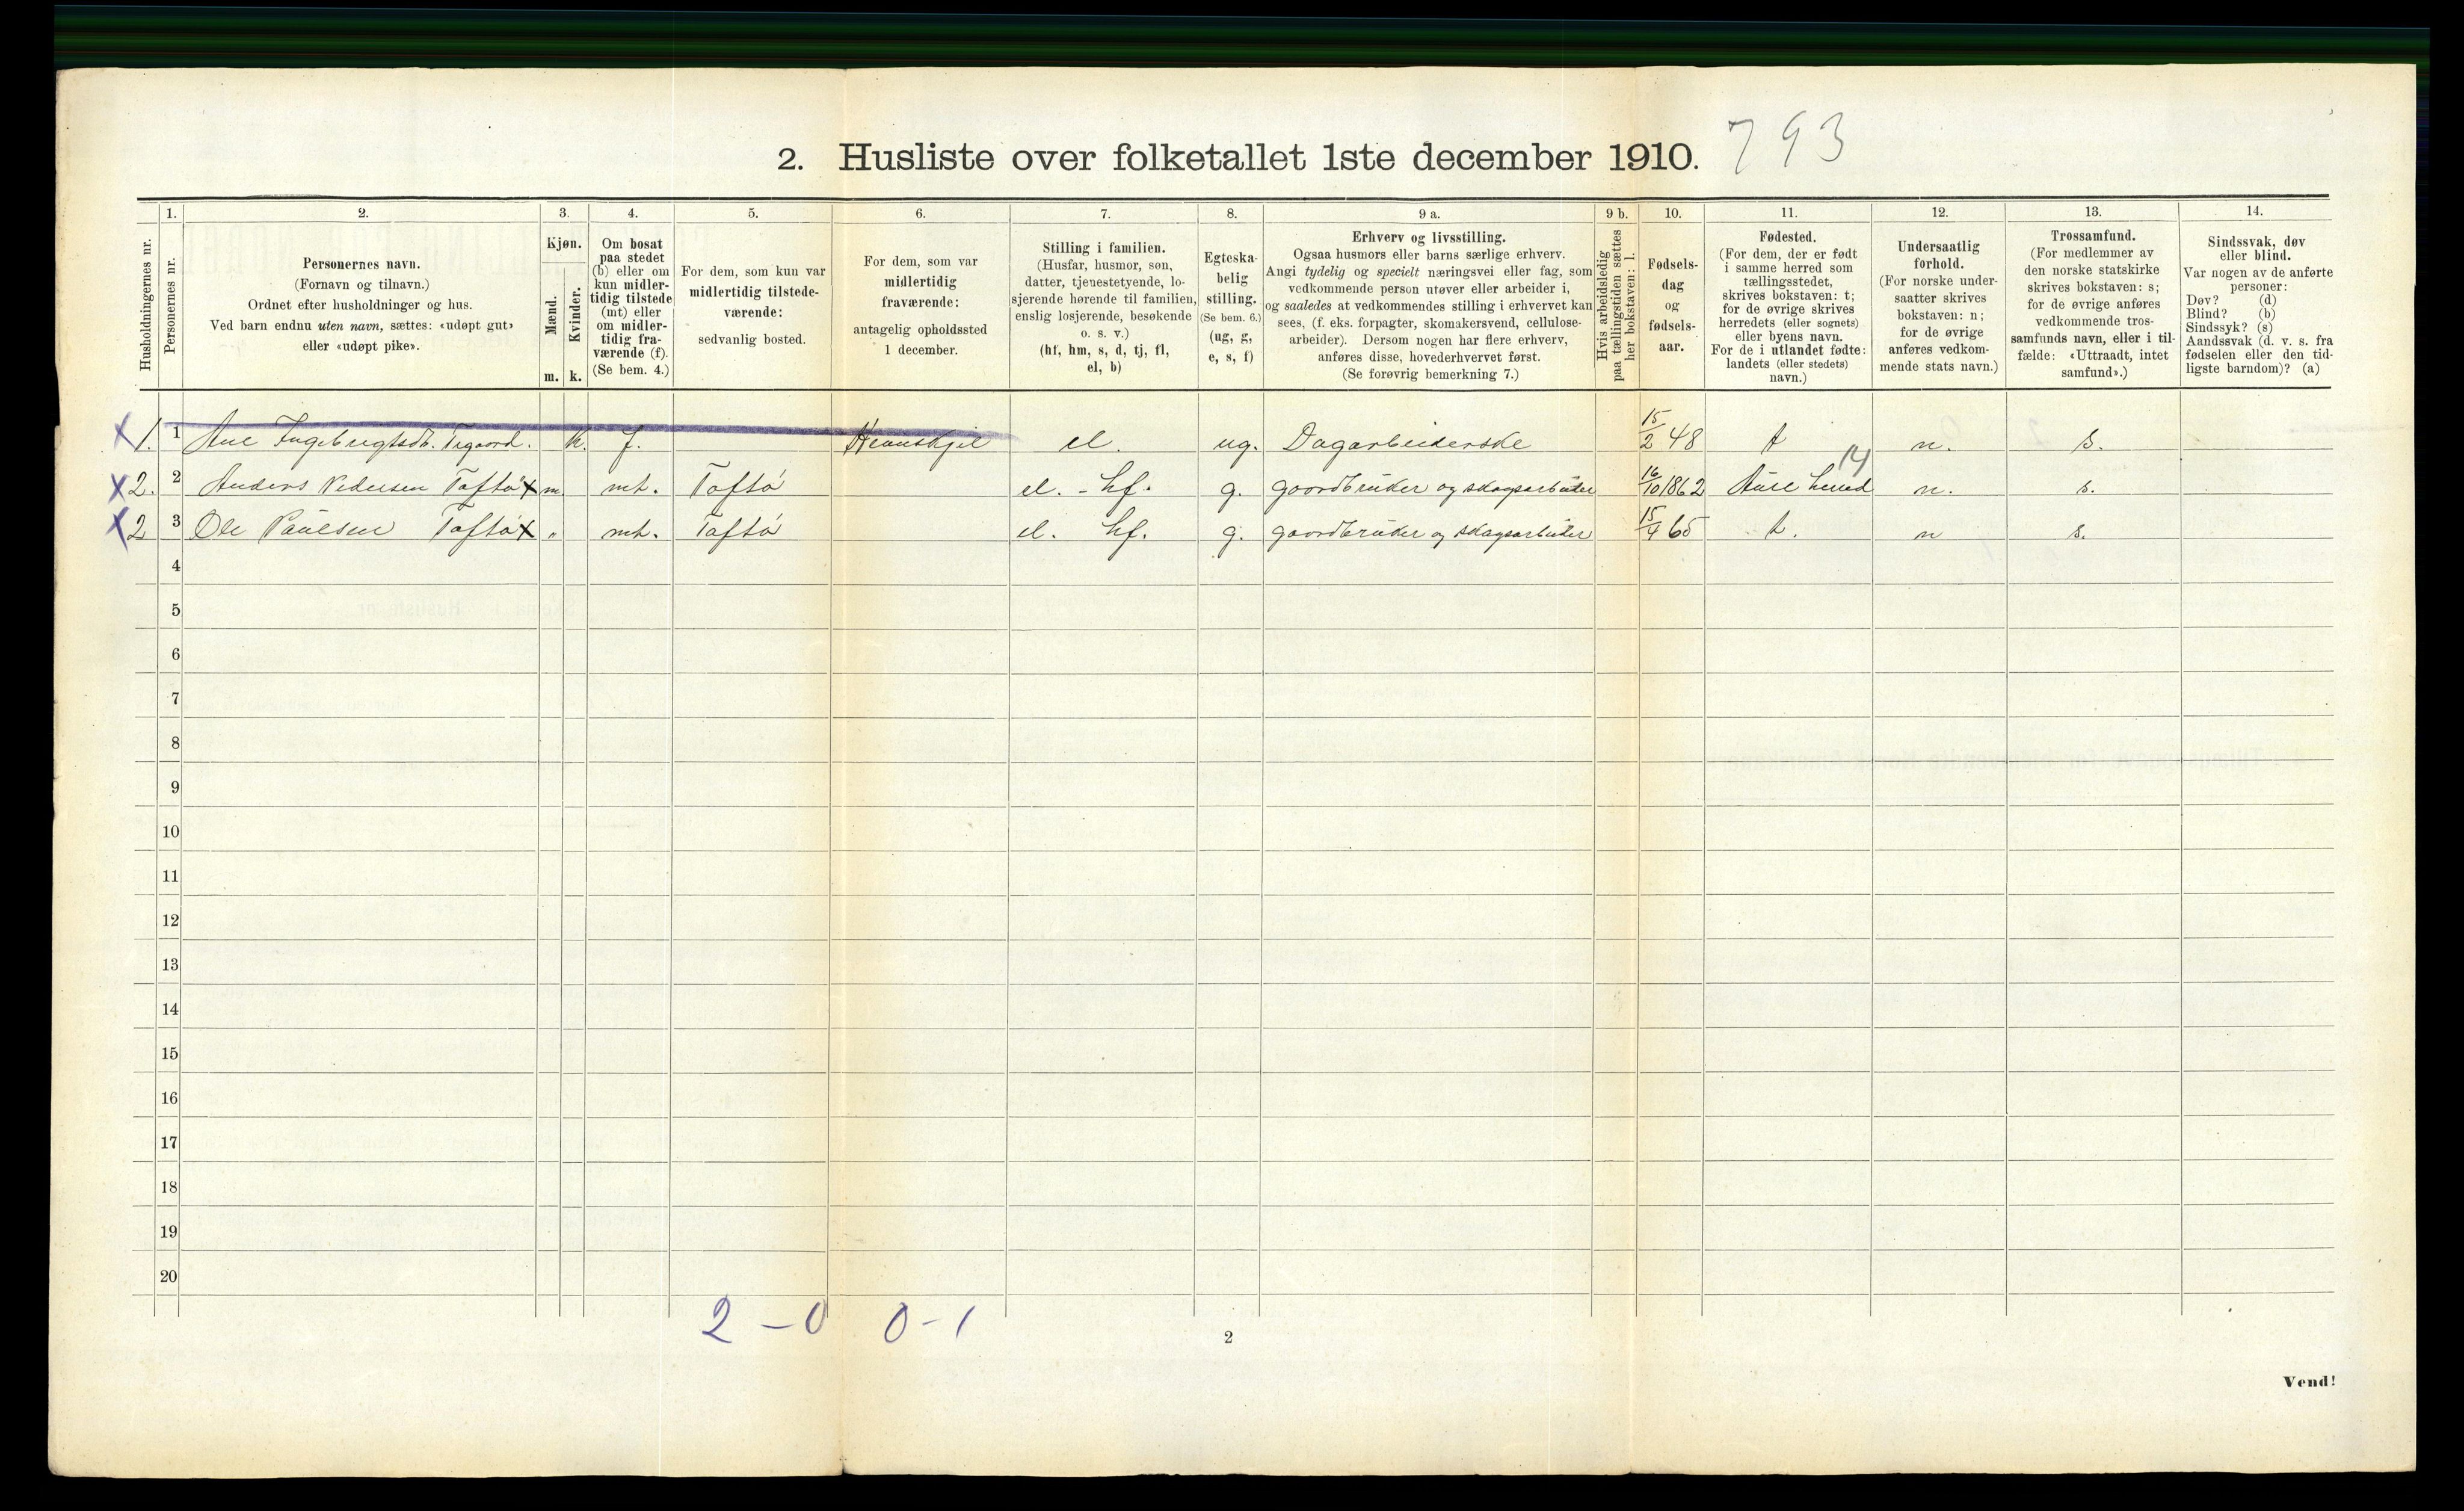 2. Husliste over folketallet 1ste december 1910. 793
Husholdningernes nr.
1. Personernes nr.
2. Personernes navn.
(Fornavn og tilnavn.)
Ordnet efter husholdninger og hus.
Ved barn endnu uten navn, sættes: «udøpt gut»
eller «udøpt pike».
3. Kjøn.
Mænd. m.
Kvinder. k.
4. Om bosat
paa stedet
(b) eller om
kun midler-
tidig tilstede
(mt) eller
om midler-
tidig fra-
værende (f).
(Se bem. 4.)
5. For dem, som kun var
midlertidig tilstede-
værende:
sedvanlig bosted.
6. For dem, som var
midlertidig
fraværende:
antagelig opholdssted
1 december.
7. Stilling i familien.
(Husfar, husmor, søn,
datter, tjenestetyende, lo-
sjerende hørende til familien,
enslig losjerende, besøkende
o. s. v.)
(hf, hm, s, d, tj, fl,
el, b)
8. Egteska-
belig
stilling.
(Se bem. 6.)
(ug, g,
e, s, f)
9 a. Erhverv og livsstilling.
Ogsaa husmors eller barns særlige erhverv.
Angi tydelig og specielt næringsvei eller fag, som
vedkommende person utøver eller arbeider i,
og saaledes at vedkommendes stilling i erhvervet kan
sees, (f. eks. forpagter, skomakersvend, cellulose-
arbeider). Dersom nogen har flere erhverv,
anføres disse, hovederhvervet først.
(Se forøvrig bemerkning 7.)
9 b. Hvis arbeidsledig
paa tællingstiden sættes
her bokstaven: l.
10. Fødsels-
dag
og
fødsels-
aar.
11. Fødested.
(For dem, der er født
i samme herred som
tællingsstedet,
skrives bokstaven: t;
for de øvrige skrives
herredets (eller sognets)
eller byens navn.
For de i utlandet fødte:
landets (eller stedets)
navn.)
12. Undersaatlig
forhold.
(For norske under-
saatter skrives
bokstaven: n;
for de øvrige
anføres vedkom-
mende stats navn.)
13. Trossamfund.
(For medlemmer av
den norske statskirke
skrives bokstaven: s;
for de øvrige anføres
vedkommende tros-
samfunds navn, eller i til-
fælde: «Uttraadt, intet
samfund».)
14. Sindssvak, døv
eller blind.
Var nogen av de anførte
personer:
Døv? (d)
Blind? (b)
Sindssyk? (s)
Aandssvak (d. v. s. fra
fødselen eller den tid-
ligste barndom)? (a)
X 1. 1 Ane Ingebrigtsdt. k. f. el. ug. Dagarbeiderske 15/2 48 t n. s.
X 2. 2 Anders Pedersen Taftø X m. mt. Taftø el. - hf. g. gaardbruker og skogsarbeider 16/10 1862 Aure herred 14 n. s.
X 2 3 Ole Paulsen Taftø X " mt. Taftø el. hf. g. gaardbruker og skogsarbeider 15/4 65 t. n s.
4
5
6
7
8
9
10
11
12
13
14
15
16
17
18
19
20
2 - 0 0 - 1
2
Vend!